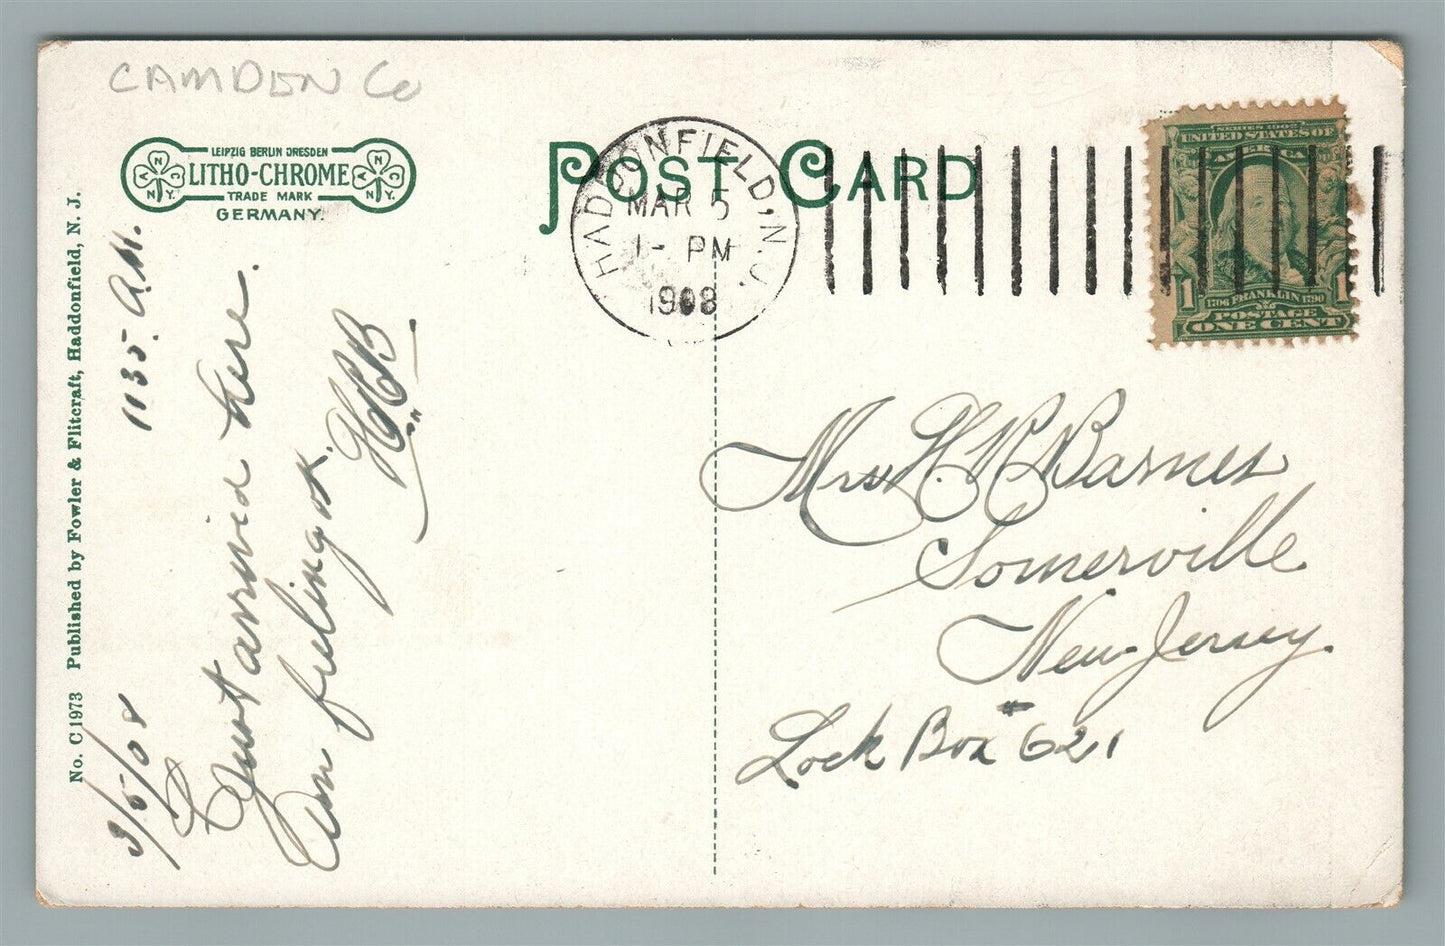 CAMDEN Co
LEIPZIG BERLIN DRESDEN
LITHO-CHROME
TRADE MARK
GERMANY.
N A N.Y.
N C A N.Y.
No. C 1973 Published by Fowler & Flitcraft, Haddonfield, N. J.
POST CARD
HADDONFIELD, N.J.
MAR 5
1- PM
1908
SERIES 1902
UNITED STATES OF
AMERICA
1 1706 FRANKLIN 1790 1
POSTAGE
ONE CENT
3/5/08 1135. A.M.
Just arrived here.
Am feeling ok.
HRB
Mrs H. R. Barnes
Somerville
New-Jersey.
Lock Box # 621